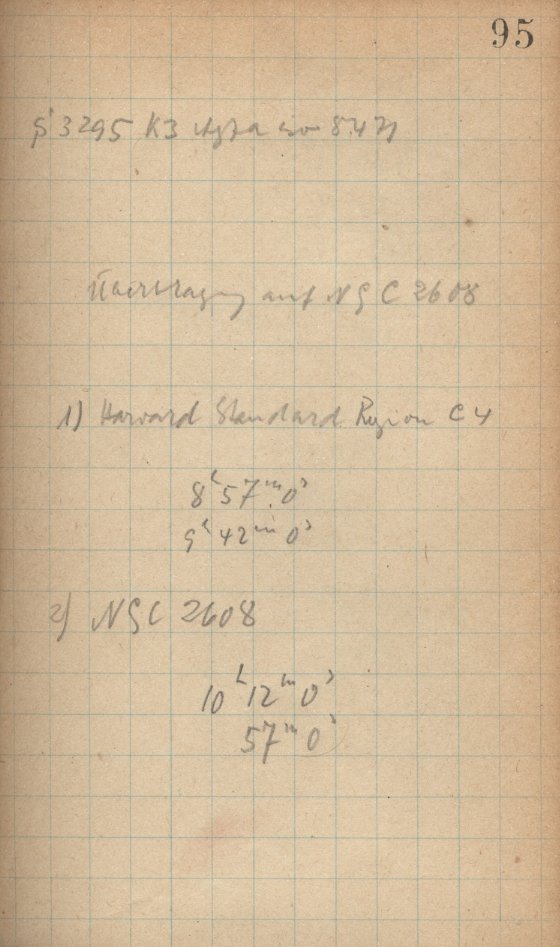 95
3295 K3 Agfa iso 8471
Übertragung auf NGC 2608
1) Harvard Standard Region C4
8h 57m 0s
9h 42m 0s
2) NGC 2608
10h 12m 0s
57m 0s